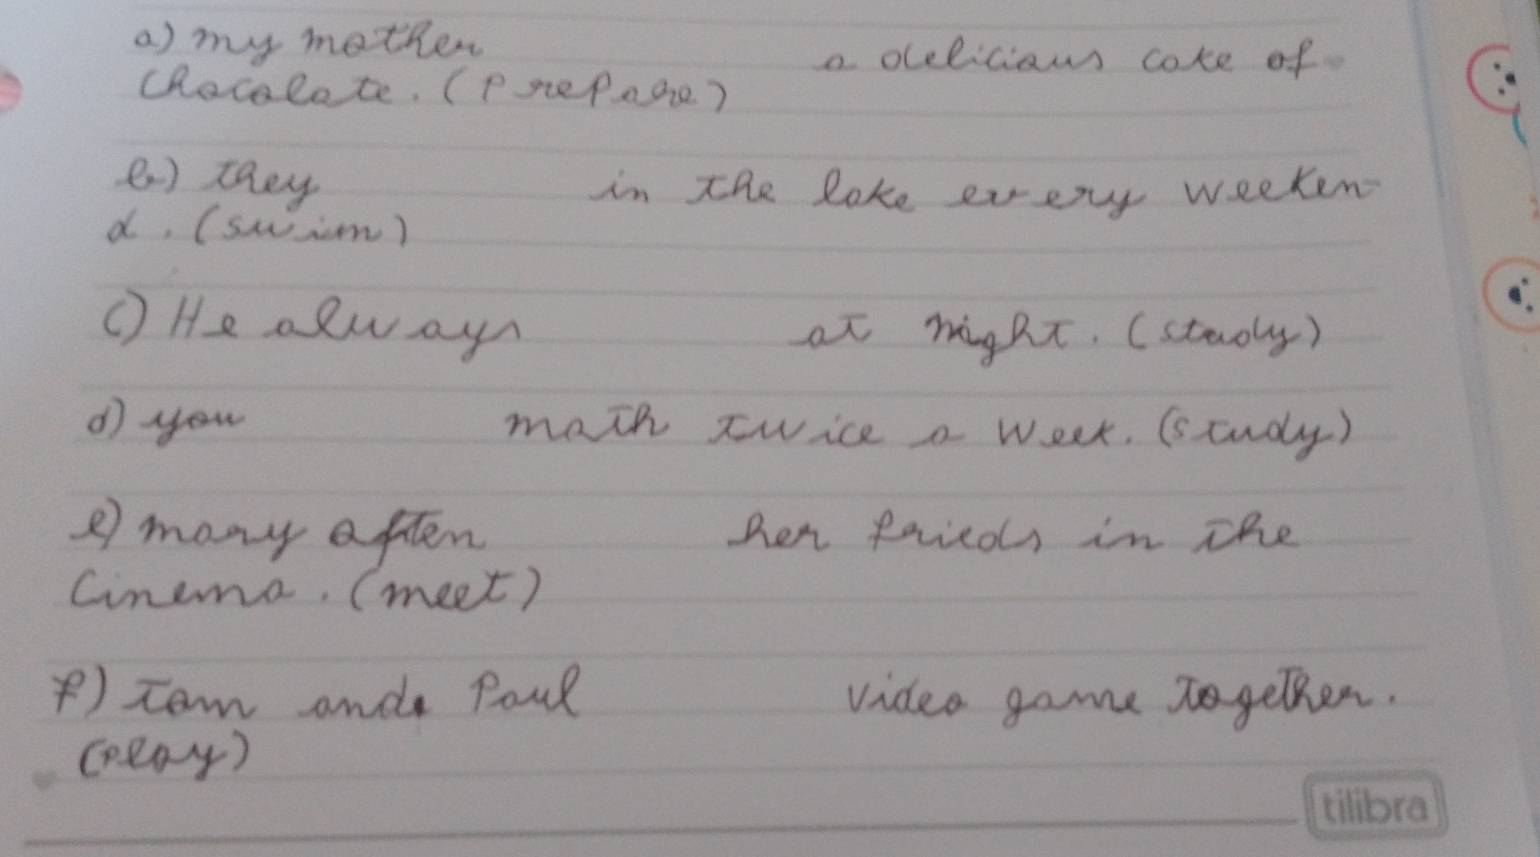 a) my mother a delicious cake of
chocolate. (Prepare)
b) they in the lake every weeken-
d. (swim)
c) He always at night. (study)
d) you math twice a week. (study)
e) mary often her frieds in the
cinema. (meet)
f) tom and Paul video game together.
(play)
tilibra